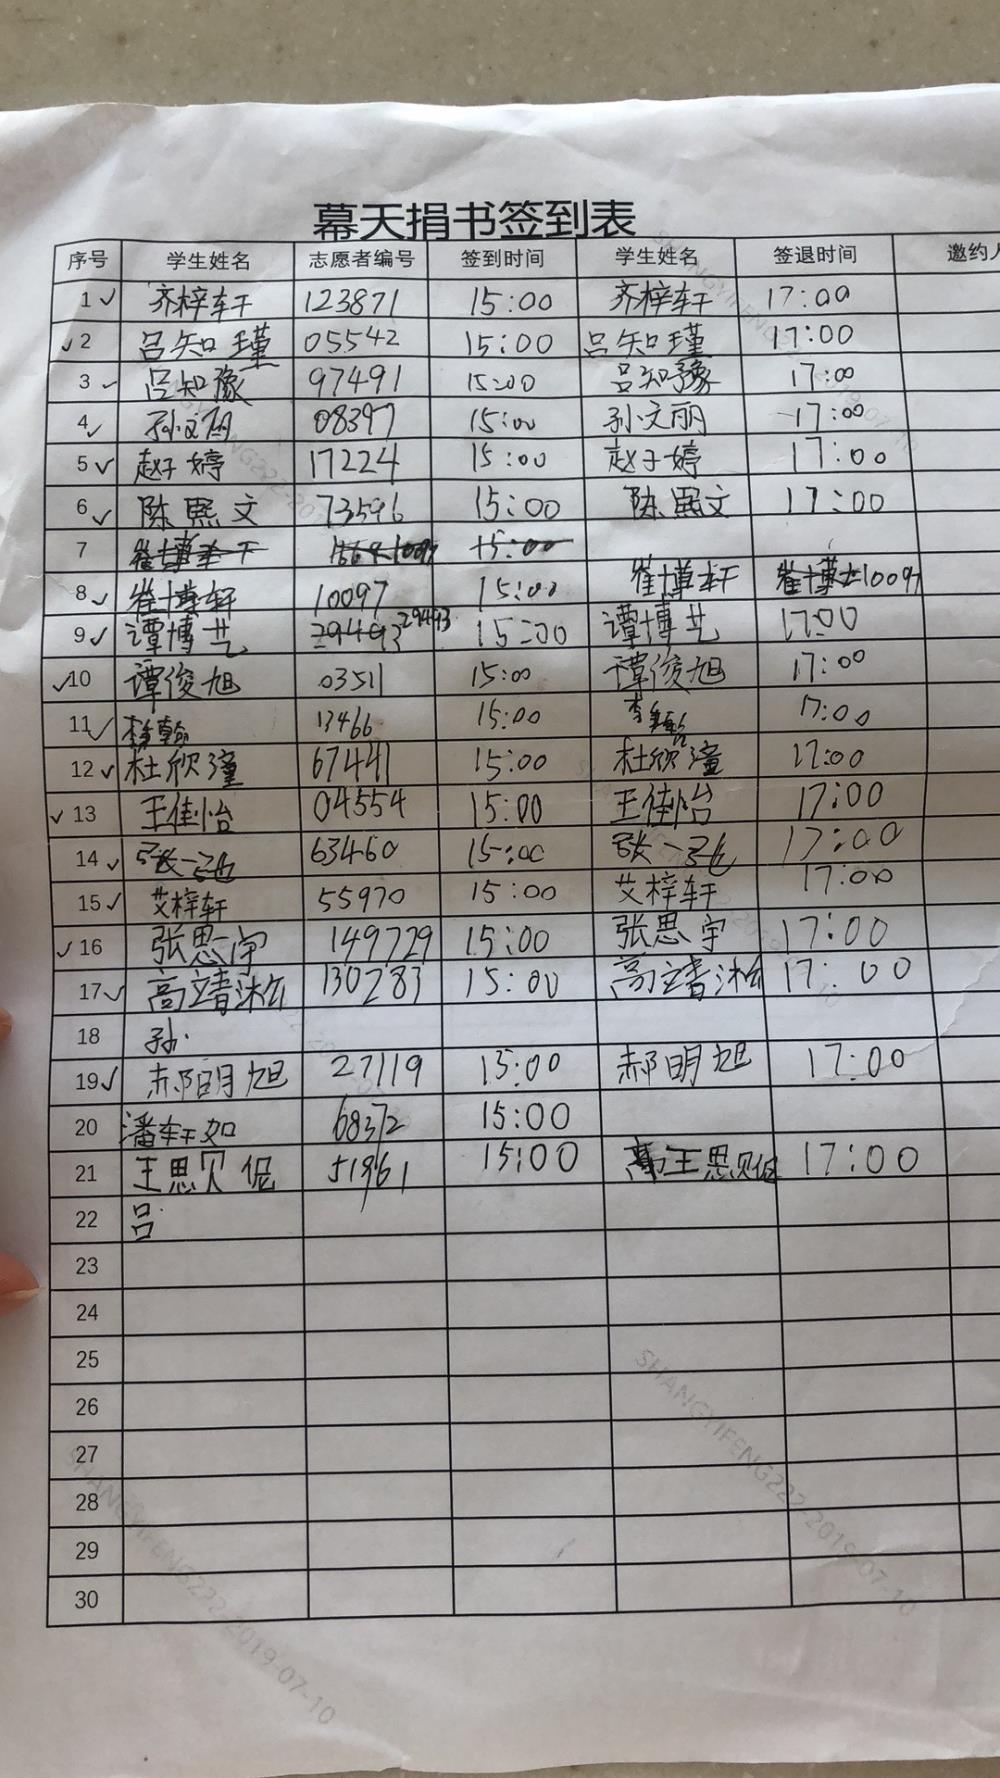 幕天捐书签到表
序号 学生姓名 志愿者编号 签到时间 学生姓名 签退时间 邀约人
1 齐梓轩 123871 15:00 齐梓轩 17:00
2 吕知瑾 05542 15:00 吕知瑾 17:00
3 吕知豫 97491 15:00 吕知豫 17:00
4 孙文丽 08397 15:00 孙文丽 17:00
5 赵子婷 17224 15:00 赵子婷 17:00
6 陈熙文 73596 15:00 陈熙文 17:00
7 15:00
8 崔博轩 10097 15:00 崔博轩 10097
9 谭博艺 29493 29493 15:00 谭博艺 17:00
10 谭俊旭 03511 15:00 谭俊旭 17:00
11 13466 15:00 17:00
12 杜欣潼 67441 15:00 杜欣潼 17:00
13 王佳怡 04554 15:00 王佳怡 17:00
14 张一弛 63460 15:00 张一弛 17:00
15 艾梓轩 55970 15:00 艾梓轩 17:00
16 张思宇 149729 15:00 张思宇 17:00
17 高靖淞 130283 15:00 高靖淞 17:00
18 孙
19 郝明旭 27119 15:00 郝明旭 17:00
20 潘轩如 68372 15:00
21 王思贝 51961 15:00 王思贝 17:00
22 吕
23
24
25
26
27
28
29
30
SHANGYIFENG222-2019-07-10
SHANGYIFENG222-2019-07-10